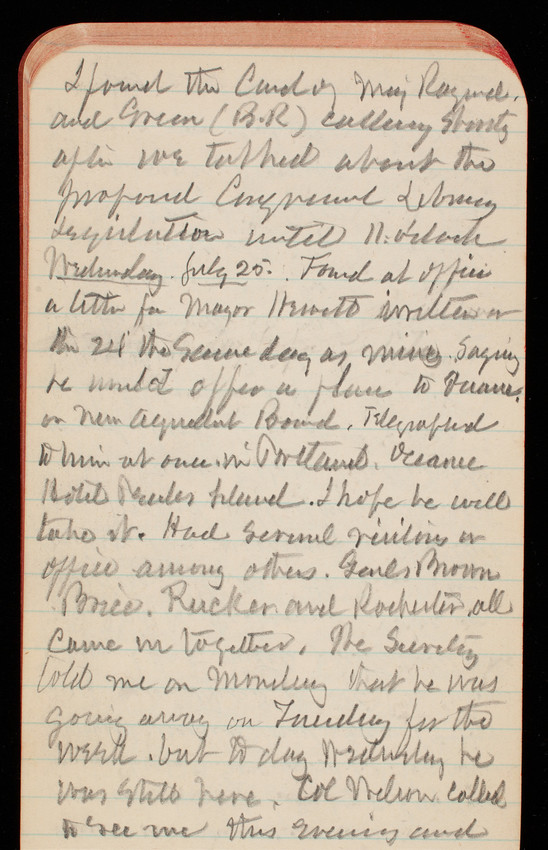 I found the Card of Maj Raymd.
and Green (B.R) calling Shortly
after we talked about the
proposed Congressnl Library
Legislation until 11. oclock
Wednesday. July 25. Found at office
a letter fm Mayor Hewitt written on
the 24' the Same day as mine saying
he would offer a place to Duane.
on New Aqueduct Board. Telegraphed
to him at once in Portland. Oceanic
Hotel Peakes Island. I hope he will
take it. Had several visitors in
office among others. Genls Brown
Brice. Rucker and Rochester, all
Came in together. The Secretary
told me on Monday that he was
going away on Tuesday for the
week. but to day Wednesday he
was still here. Col Wilson called
to see me this evening and